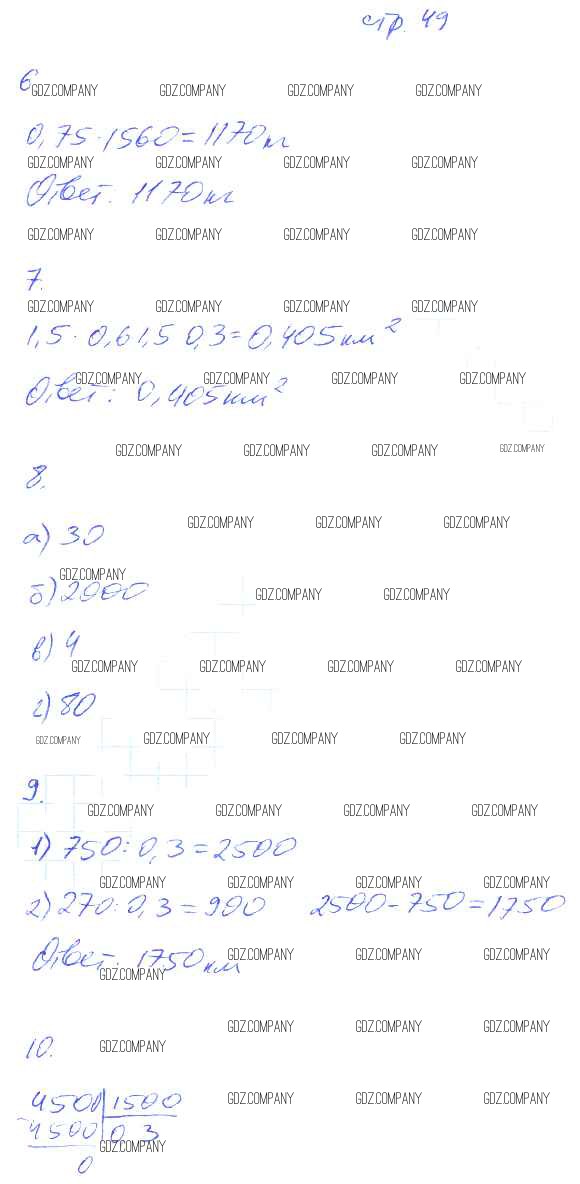 стр. 49
6
GDZ.COMPANY GDZ.COMPANY GDZ.COMPANY GDZ.COMPANY
0,75·1560=1170 кг
GDZ.COMPANY GDZ.COMPANY GDZ.COMPANY GDZ.COMPANY
Ответ: 1170 кг
GDZ.COMPANY GDZ.COMPANY GDZ.COMPANY GDZ.COMPANY
7.
GDZ.COMPANY GDZ.COMPANY GDZ.COMPANY GDZ.COMPANY
1,5·0,6 1,5 0,3=0,405 км²
GDZ.COMPANY GDZ.COMPANY GDZ.COMPANY GDZ.COMPANY
Ответ: 0,405 км²
GDZ.COMPANY GDZ.COMPANY GDZ.COMPANY GDZ.COMPANY
8.
GDZ.COMPANY GDZ.COMPANY GDZ.COMPANY
а) 30
GDZ.COMPANY
б) 2000
GDZ.COMPANY GDZ.COMPANY
в) 4
GDZ.COMPANY GDZ.COMPANY GDZ.COMPANY GDZ.COMPANY
г) 80
GDZ.COMPANY GDZ.COMPANY GDZ.COMPANY GDZ.COMPANY
9.
GDZ.COMPANY GDZ.COMPANY GDZ.COMPANY GDZ.COMPANY
1) 750:0,3=2500
GDZ.COMPANY GDZ.COMPANY GDZ.COMPANY GDZ.COMPANY
2) 270:0,3=900 2500-750=1750
GDZ.COMPANY GDZ.COMPANY GDZ.COMPANY
Ответ: 1750 км
GDZ.COMPANY
GDZ.COMPANY GDZ.COMPANY GDZ.COMPANY
10.
GDZ.COMPANY
4500 1500
GDZ.COMPANY GDZ.COMPANY GDZ.COMPANY
-4500 0 3
GDZ.COMPANY
0